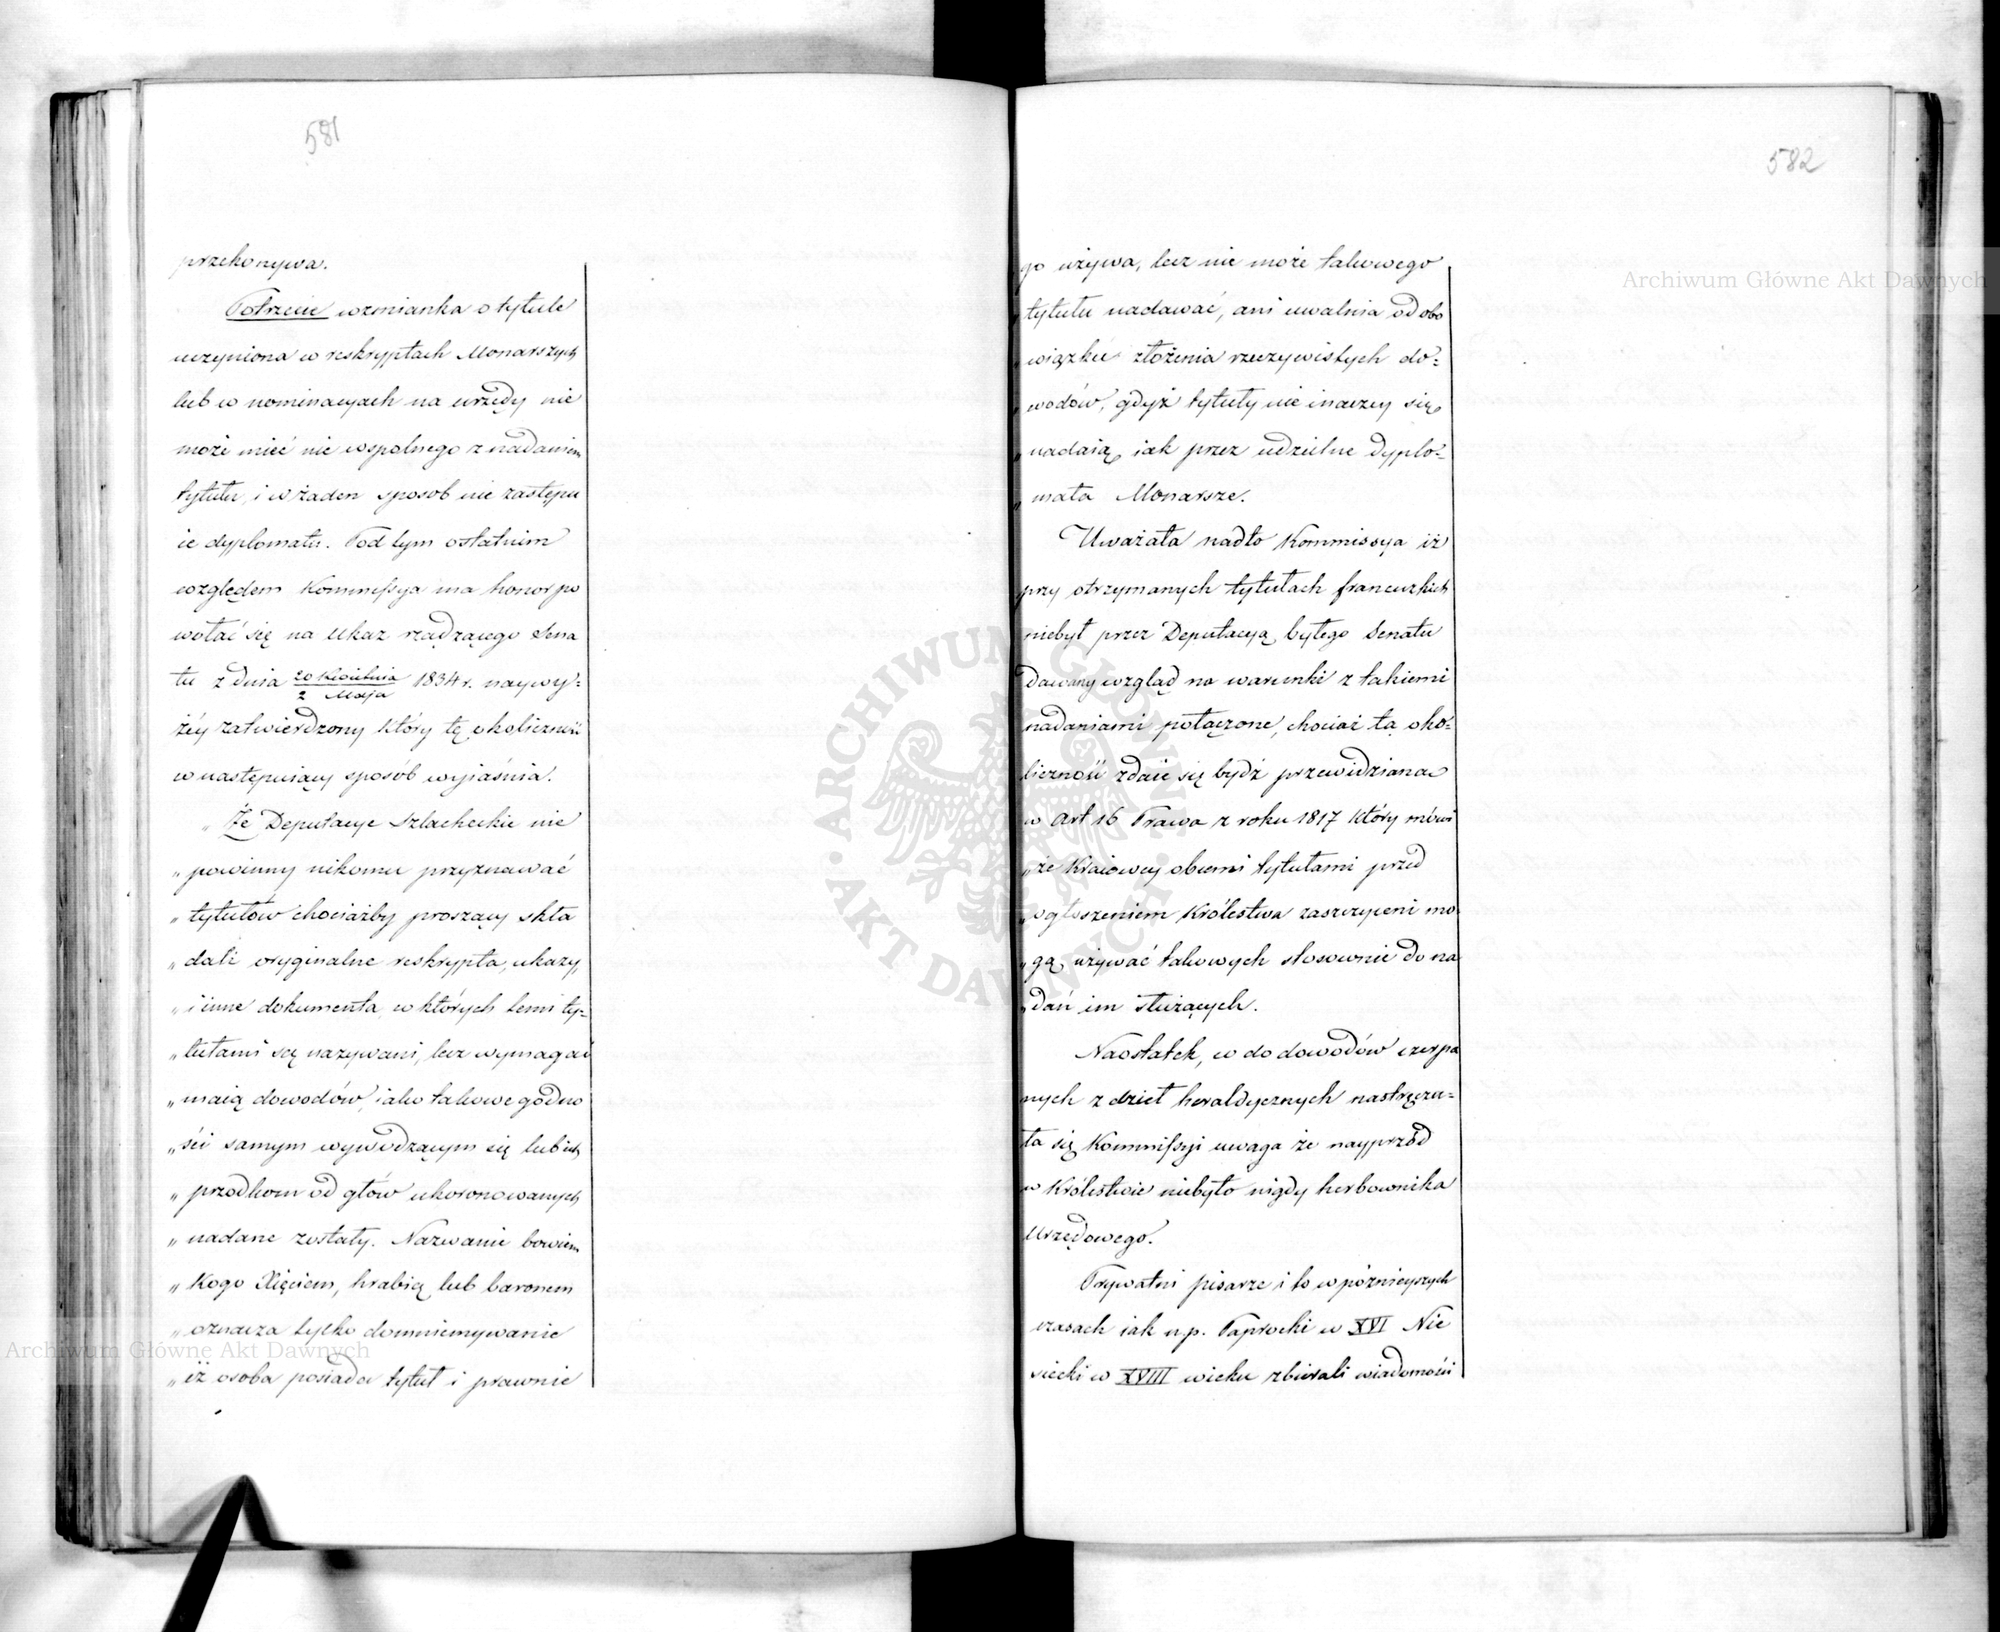 581
przekonywa.
Potrzecie wzmianka o tytule
uczyniona w reskryptach Monarszych
lub w nominacyach na urzędy nie
może mieć nic wspolnego z nadaniem
tytułu, i w żaden sposob nie zastępu
ie dyplomatu. Pod tym ostatnim
względem Kommissya ma honor po
wołać się na Ukaz rządzącego Sena
tu z dnia 20 Kwietnia / 2 Maja 1834 r. naywy=
żéy zatwierdzony który tę okoliczność
w następuiący sposób wyjaśnia.
„ Że Deputacye Szlacheckie nie
„ powinny nikomu przyznawać
„ tytułów chociażby proszący skła
„ dali oryginalne reskrypta, ukazy,
„ i inne dokumenta, w których temi ty=
„ tułami są nazywani, lecz wymagać
„ maią dowodów, iako takowe godno
„ ści samym wywodzącym się lub ich
„ przodkom od głów ukoronowanych
„ nadane zostały. Nazwanie bowiem
„ Kogo Xięciem, hrabią lub baronem
„ oznacza tylko domniemywanie
„ iż osoba posiada tytuł i prawnie
582
go używa, lecz nie może takowego
„ tytułu nadawać, ani uwalnia od obo
„ wiązku złożenia rzeczywistych do=
„ wodów, gdyż tytuły nie inaczey się
„ nadaią, iak przez udzielne dyplo=
„ mata Monarsze.
Uważała nadto Kommissya iż
przy otrzymanych tytułach francuzkich
niebył przez Deputacyą byłego Senatu
dawany wzgląd na warunki z takiemi
nadaniami połączone, chociaż ta oko=
liczność zdaie się bydź przewidziana
w Art 16 Prawa z roku 1817 który mówi
„ że Kraiowcy obcemi tytułami przed
„ ogłoszeniem Królestwa zaszczyceni mo
„ gą używać takowych stosownie do na
„ dań im służących.
Naostatek, co do dowodów czerpa
nych z dzieł heraldycznych nastręcza=
ła się Kommissyi uwaga że nayprzód
w Królestwie niebyło nigdy herbownika
Urzędowego.
Prywatni pisarze i to w późnieyszych
czasach iak np. Paprocki w XVI Nie
siecki w XVIII wieku zbierali wiadomości
Archiwum Główne Akt Dawnych
Archiwum Główne Akt Dawnych
ARCHIWUM GŁÓWNE AKT DAWNYCH